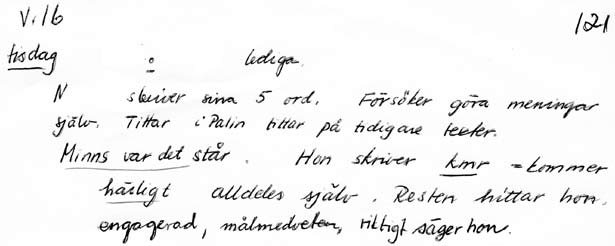 V. 16 121
tisdag o lediga.
N skriver sina 5 ord. Försöker göra meningar
själv. Tittar i Palin tittar på tidigare texter.
Minns var det står. Hon skriver kmr = kommer
härligt alldeles själv. Resten hittar hon.
engagerad, målmedveten, riktigt säger hon.